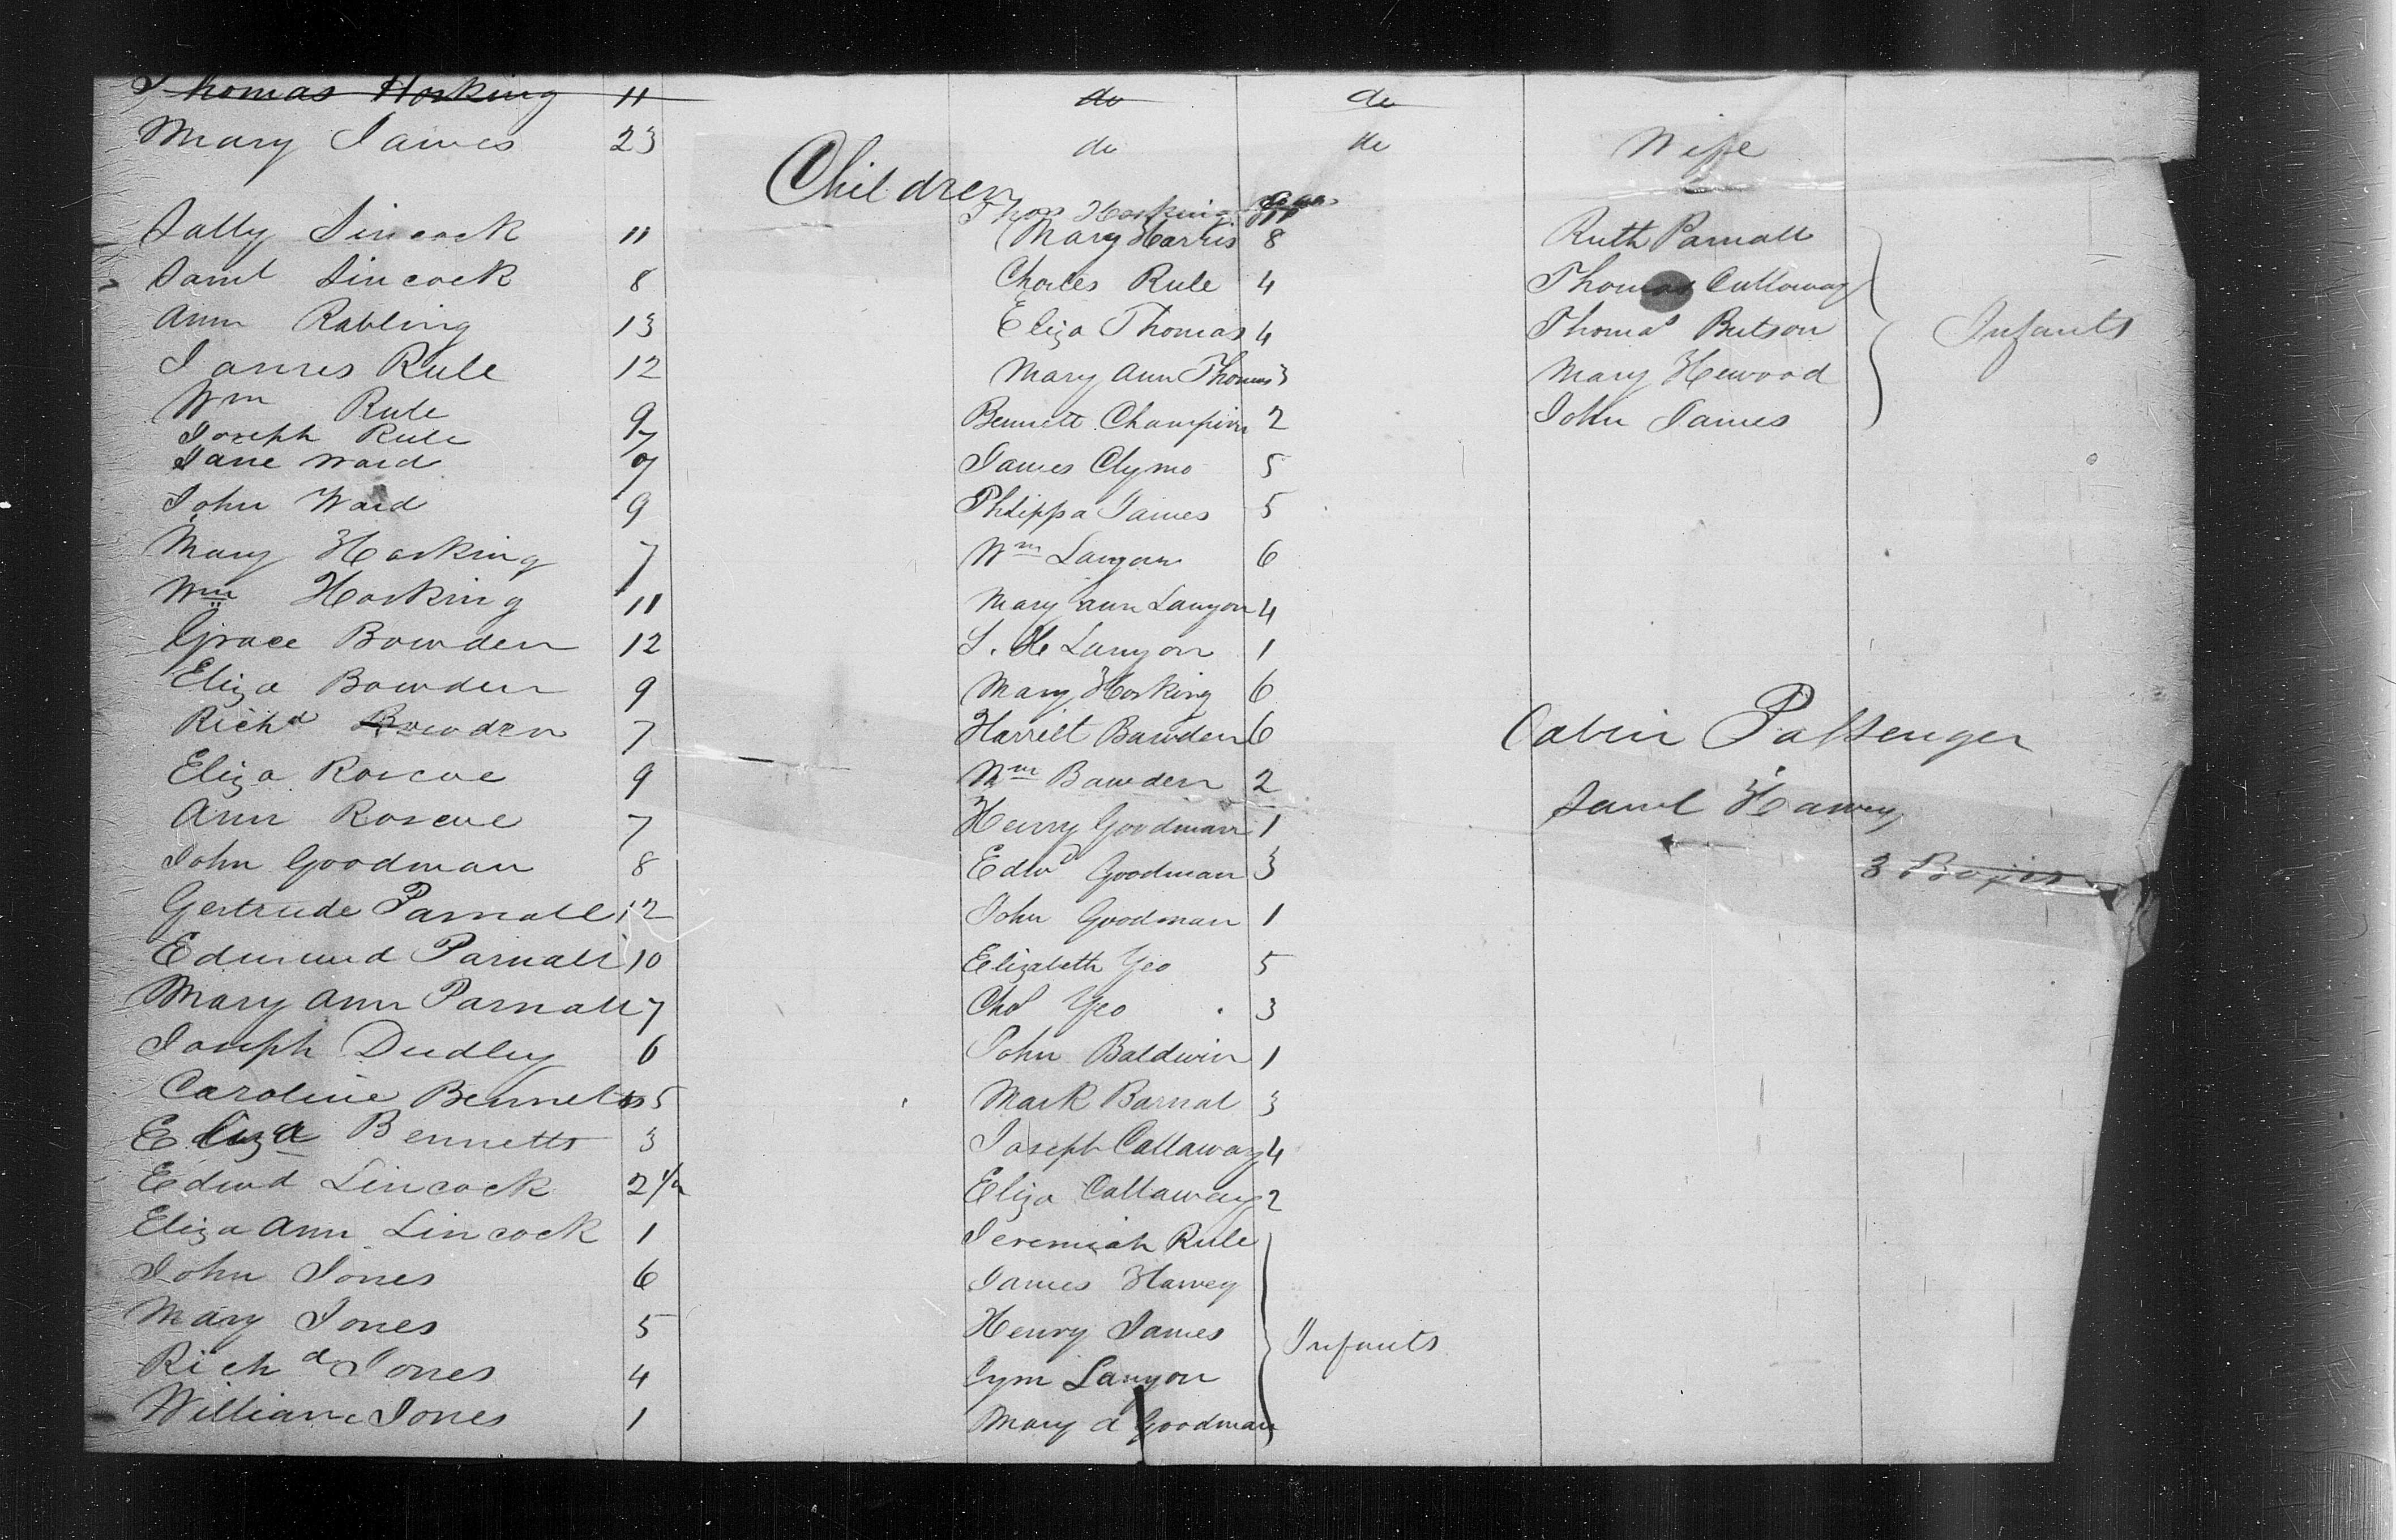 Thomas Hosking 11 do do
Mary James 23 do do Wife
Children
Sally Sincock 11
Saml Sincock 8
Ann Rabling 13
James Rule 12
Wm Rule 9
Joseph Rule 7
Jane Ward 7
John Ward 9
Mary Hosking 7
Wm Hosking 11
Grace Bowden 12
Eliza Bowden 9
Richd Bowden 7
Eliza Roscoe 9
Ann Roscoe 7
John Goodman 8
Gertrude Parnall 12
Edmund Parnall 10
Mary Ann Parnall 7
Joseph Dudley 6
Caroline Bennetts 5
Eliza Bennetts 3
Edwd Sincock 2 1/2
Eliza Ann Sincock 1
John Jones 6
Mary Jones 5
Richd Jones 4
William Jones 1
Thos Hosking
Mary Harris 8
Charles Rule 4
Eliza Thomas 4
Mary Ann Thomas 3
Bennett Champion 2
James Clymo 5
Philippa James 5
Wm Lanyon 6
Mary ann Lanyon 4
S. H Lanyon 1
Mary Hosking 6
Harriet Bawden 6
Wm Bawden 2
Henry Goodman 1
Edwd Goodman 3
John Goodman 1
Elizabeth Yeo 5
Chs Yeo 3
John Baldwin 1
Mark Barnat 3
Joseph Callaway 4
Eliza Callaway 2
Jeremiah Rule
James Harvey
Henry James
Lanyon
Mary a Goodman
Infants
Ruth Parnall
Thomas Callaway
Thomas Butson
Mary Hewood
John James
Infants
Cabin Passenger
Saml Harvey
3 Boxes